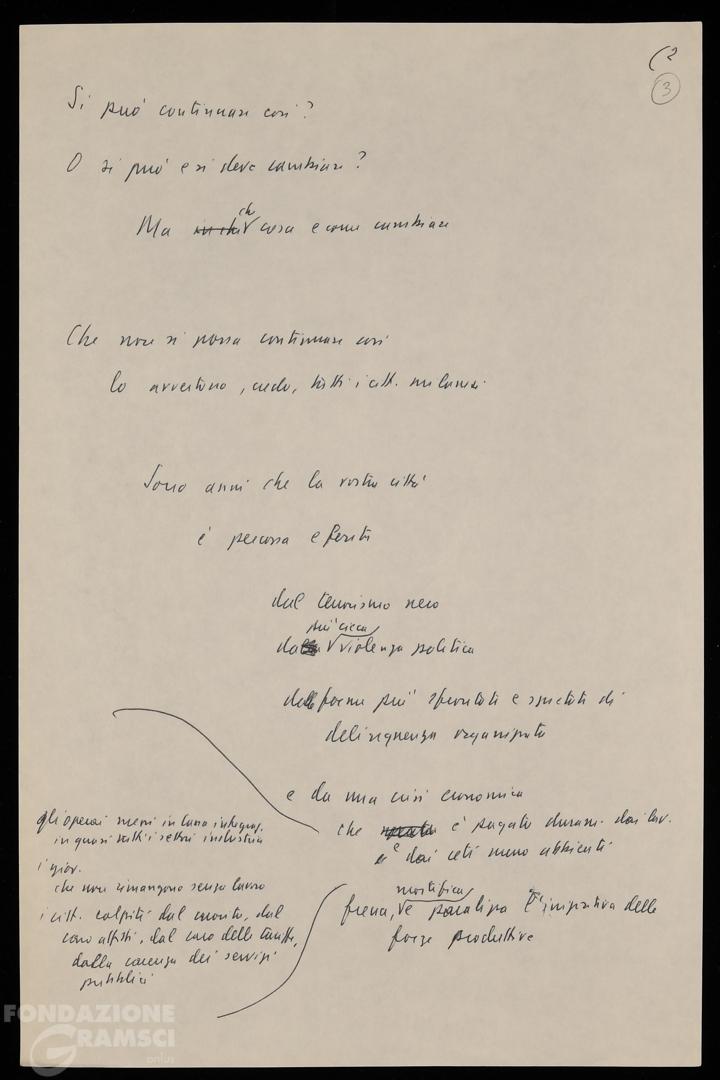 (2
3
Si può continuare così?
O si può e si deve cambiare?
Ma che cosa e come cambiare
Che non si possa continuare così
lo avvertono, credo, tutti i citt. milanesi
Sono anni che la vostra città
è percorsa e ferita
dal terrorismo nero
più cieca
dalla violenza politica
dalle forme più sfrontate e spietate di
delinquenza organizzata
e da una crisi economica
che è pagata duram. dai lav.
e dai ceti meno abbienti
mortifica
frena, e paralizza l'iniziativa delle
forze produttive
gli operai messi in cassa integraz.
in quasi tutti i settori industria
i giov.
che non rimangono senza lavoro
i citt. colpiti dal
caro affitti, dal caro delle tariffe,
dalla carenza dei servizi
pubblici
FONDAZIONE
GRAMSCI
onlus